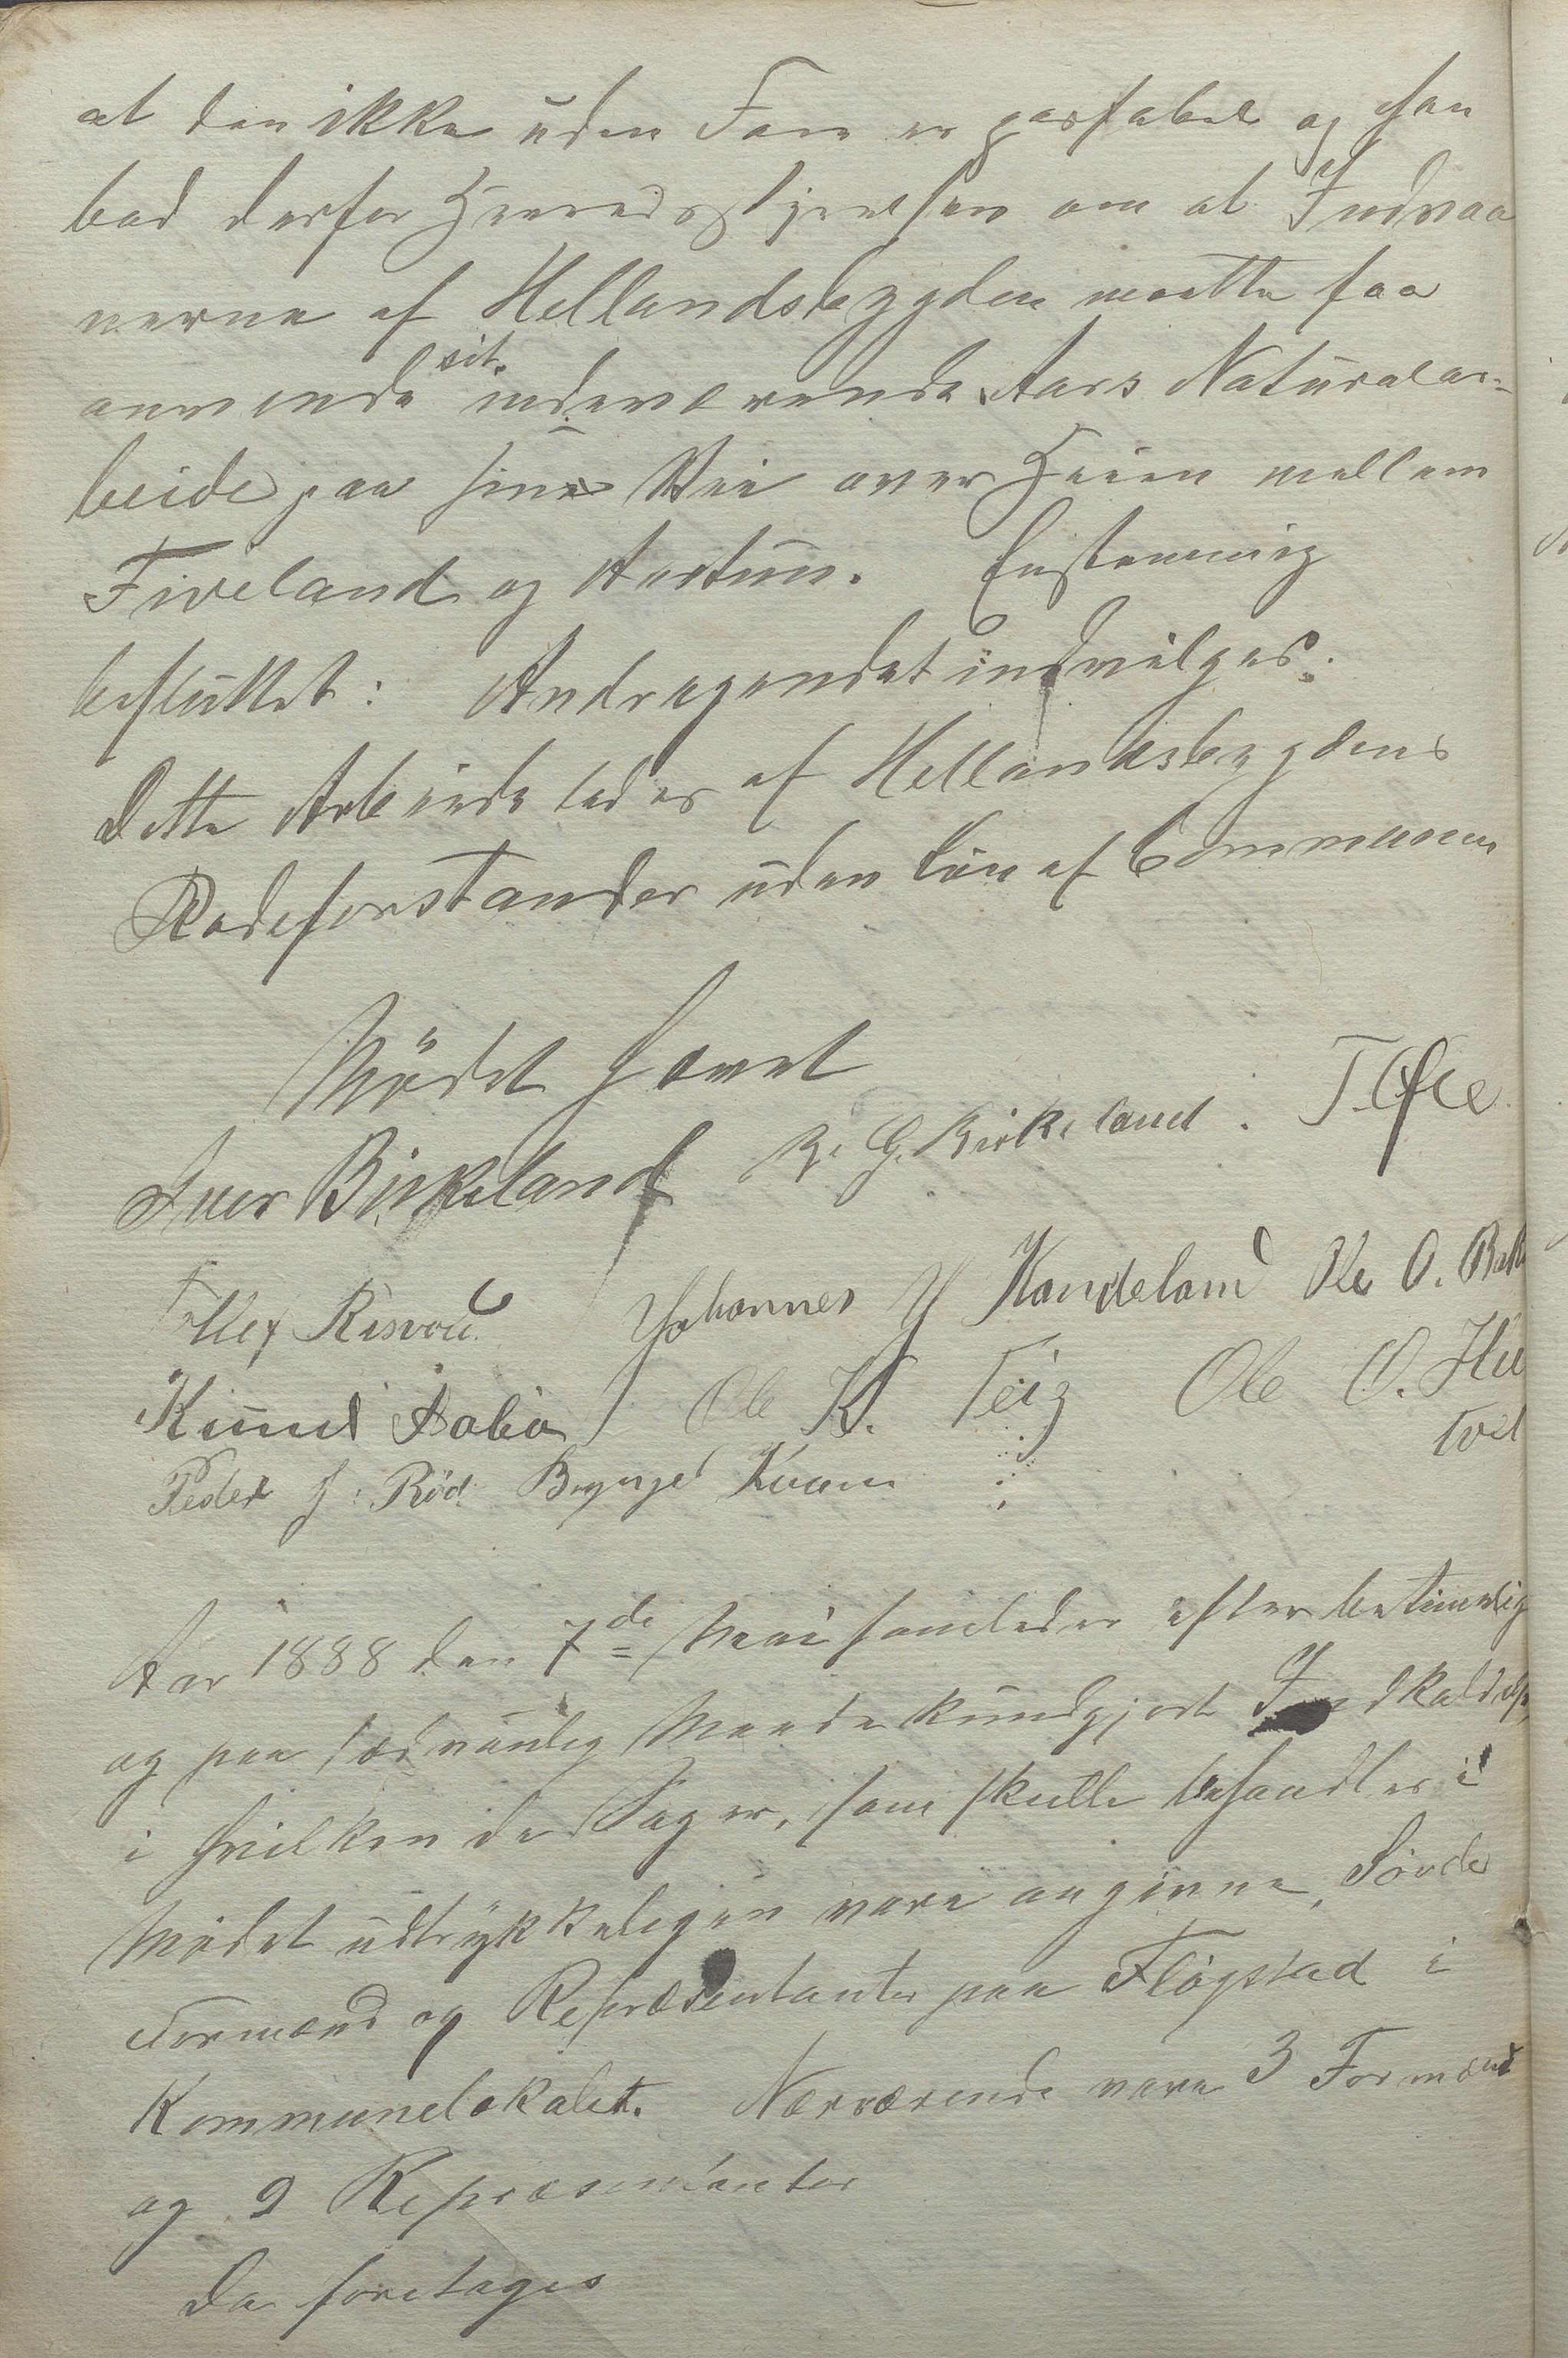 at den ikke uden Fare er passabel og han
bad derfor Herredsstyrelsen om at Indvaa
nerne af Hellandsbygden maatte faa
anvende sit indeværende Aars Naturalar=
beide paa sin Vei over Heien mellem
Fiveland og Aartun. Enstemmig
besluttet: Andragendet indvilges.
Dette Arbeide ledes af Hellandsbygdens
Rodeforstander uden Løn af Communen
Mødet hævet
Iver Birkeland R. G. Birkeland. T. Ofte
Tollef Risvold Johannes J Handeland Ole O. Bak
Knud Aabø Ole K. Teig Ole O. Hu
tvet
Peder J: Röd Brynjel Kvam
Aar 1888 den 7de Mai samledes efter betimelig
og paa sædvanlig Maade kundgjort Indkaldelse,
i hvilken de Sager, som skulle behandles i
Mødet udtrykkeligen vare angivne, Søvde
Formænd og Repræsentanter paa Fløgstad i
Kommunelokalet. Nærværende vare 3 Formænd
og 9 Repræsentanter
Da foretages